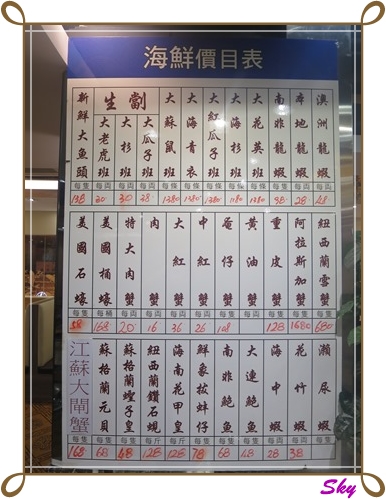 海鮮價目表
澳洲龍蝦
每両
48
本地龍蝦
每両
28
南非龍蝦
每両
38
大花英班
每隻
1380
大海杉班
每隻
1180
大紅瓜子班
每隻
1380
大海青衣
每隻
1380
大蘇鼠班
每隻
1380
生劏
大瓜子班
每両
28
大杉班
每両
30
大老虎班
每両
20
新鮮大魚頭
每隻
138
紐西蘭雪蟹
每隻
680
阿拉斯加蟹
每隻
1680
重皮蟹
每隻
128
黃油蟹
奄仔蟹
每隻
108
中紅蟹
26
大紅蟹
36
肉蟹
16
特大肉蟹
20
美國桶蠔
每桶
168
美國石蠔
每隻
58
瀨尿蝦
花竹蝦
38
海中蝦
28
大連鮑魚
每隻
48
南非鮑魚
每隻
68
鮮象拔蚌仔
每隻
78
海南花甲皇
每斤
128
紐西蘭鑽石蜆
每斤
128
蘇格蘭蟶子皇
每隻
48
蘇格蘭元貝
每隻
68
江蘇大閘蟹
每隻
168
Sky